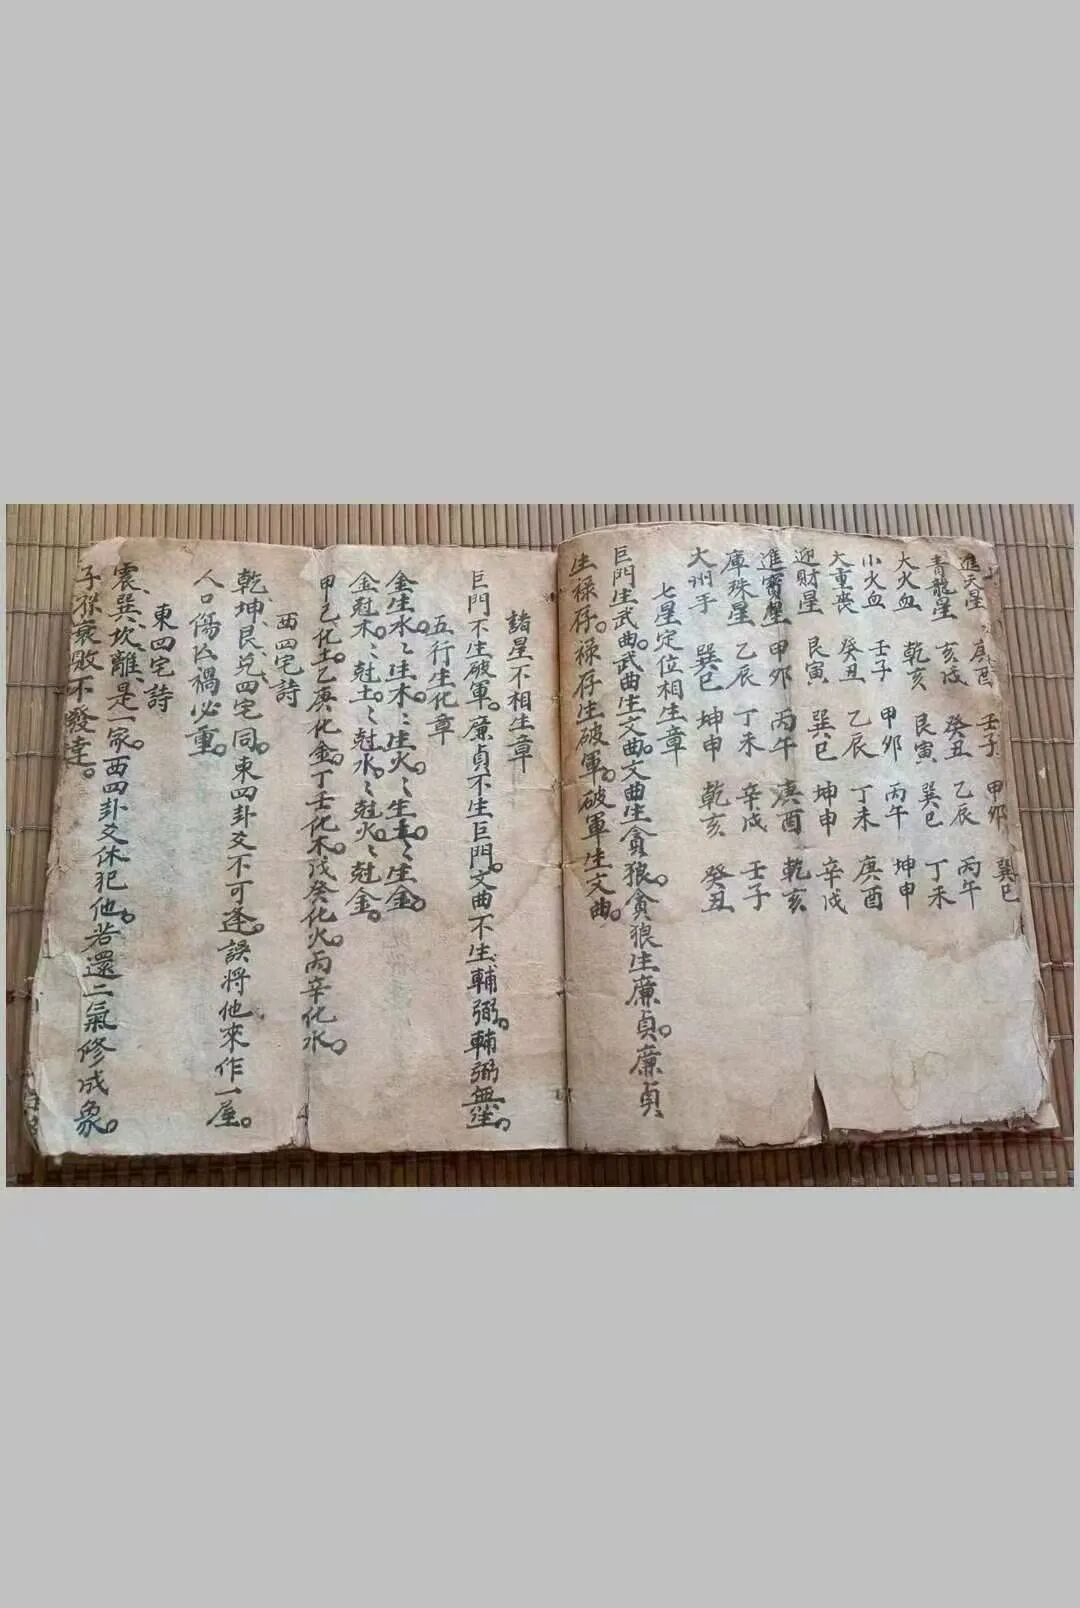 進天星 庚酉 壬子 甲卯 巽巳
青龍星 亥戌 癸丑 乙辰 丙午
大火血 乾亥 艮寅 巽巳 丁未
小火血 壬子 甲卯 丙午 坤申
大重喪 癸丑 乙辰 丁未 庚酉
迎財星 艮寅 巽巳 坤申 辛戌
進寶星 甲卯 丙午 庚酉 乾亥
庫珠星 乙辰 丁未 辛戌 壬子
大州手 巽巳 坤申 乾亥 癸丑
七星定位相生章
巨門生武曲。武曲生文曲。文曲生貪狼。貪狼生廉貞。廉貞
生禄存。禄存生破軍。破軍生文曲。
諸星不相生章
巨門不生破軍。廉貞不生巨門。文曲不生輔弼。輔弼無生。
五行生化章
金生水。〻生木。〻生火。〻生土。〻生金。
金尅木。〻尅土。〻尅水。〻尅火。〻尅金。
甲己化土。乙庚化金。丁壬化木。戊癸化火。丙辛化水。
西四宅詩
乾、坤、艮、兑四宅同。東四卦爻不可逢。誤將他來作一屋。
人口傷亡禍必重。
東四宅詩
震、巽、坎、離、是一家。西四卦爻休犯他。若還二氣修成象。
子孫衰敗不發達。